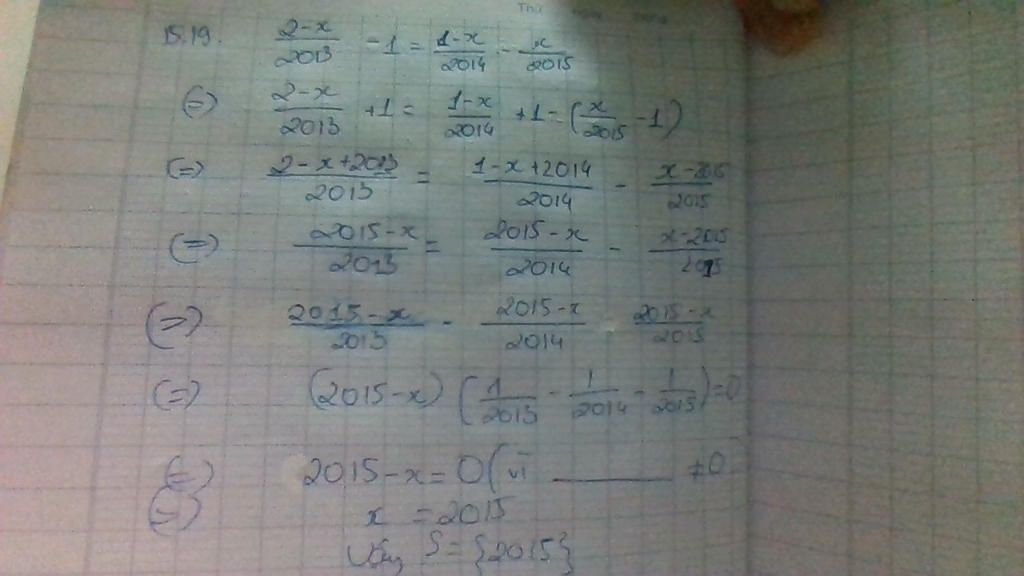 15.19. \frac{2-x}{2013} - 1 = \frac{1-x}{2014} - \frac{x}{2015}
(=) \frac{2-x}{2013} + 1 = \frac{1-x}{2014} + 1 - (\frac{x}{2015} - 1)
(=) \frac{2-x+2013}{2013} = \frac{1-x+2014}{2014} - \frac{x-2015}{2015}
(=) \frac{2015-x}{2013} = \frac{2015-x}{2014} - \frac{x-2015}{2015}
(=) \frac{2015-x}{2013} - \frac{2015-x}{2014} \frac{2015-x}{2015}
(=) (2015-x) (\frac{1}{2013} - \frac{1}{2014} - \frac{1}{2015}) = 0
(=) 2015-x = 0 (vì ______ ≠0
(=) x = 2015
Vậy S = {2015}